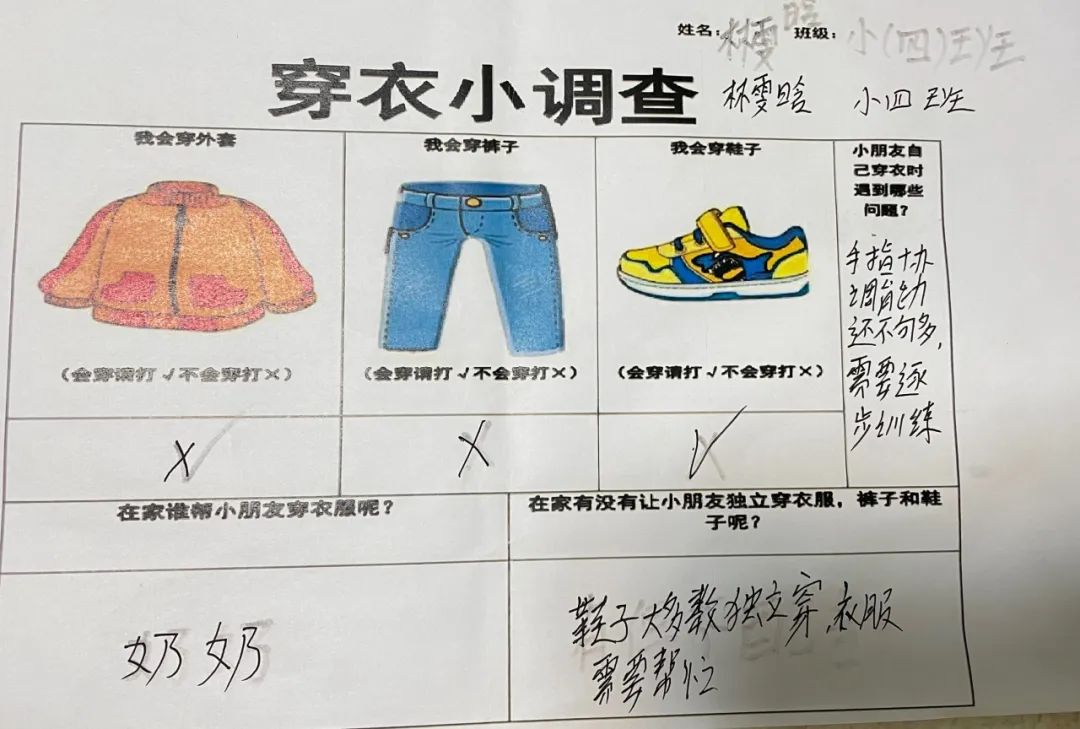 姓名:林雯晗 班级:小(四)班
穿衣小调查
林雯晗 小四班
我会穿外套
我会穿裤子
我会穿鞋子
小朋友自
己穿衣时
遇到哪些
问题?
手指协
调能力
还不够多,
需要逐
步训练
(会穿请打√不会穿打×)
(会穿请打√不会穿打×)
(会穿请打√不会穿打×)
×
×
√
在家谁帮小朋友穿衣服呢?
在家有没有让小朋友独立穿衣服,裤子和鞋
子呢?
奶奶
鞋子大多数独立穿,衣服
需要帮忙